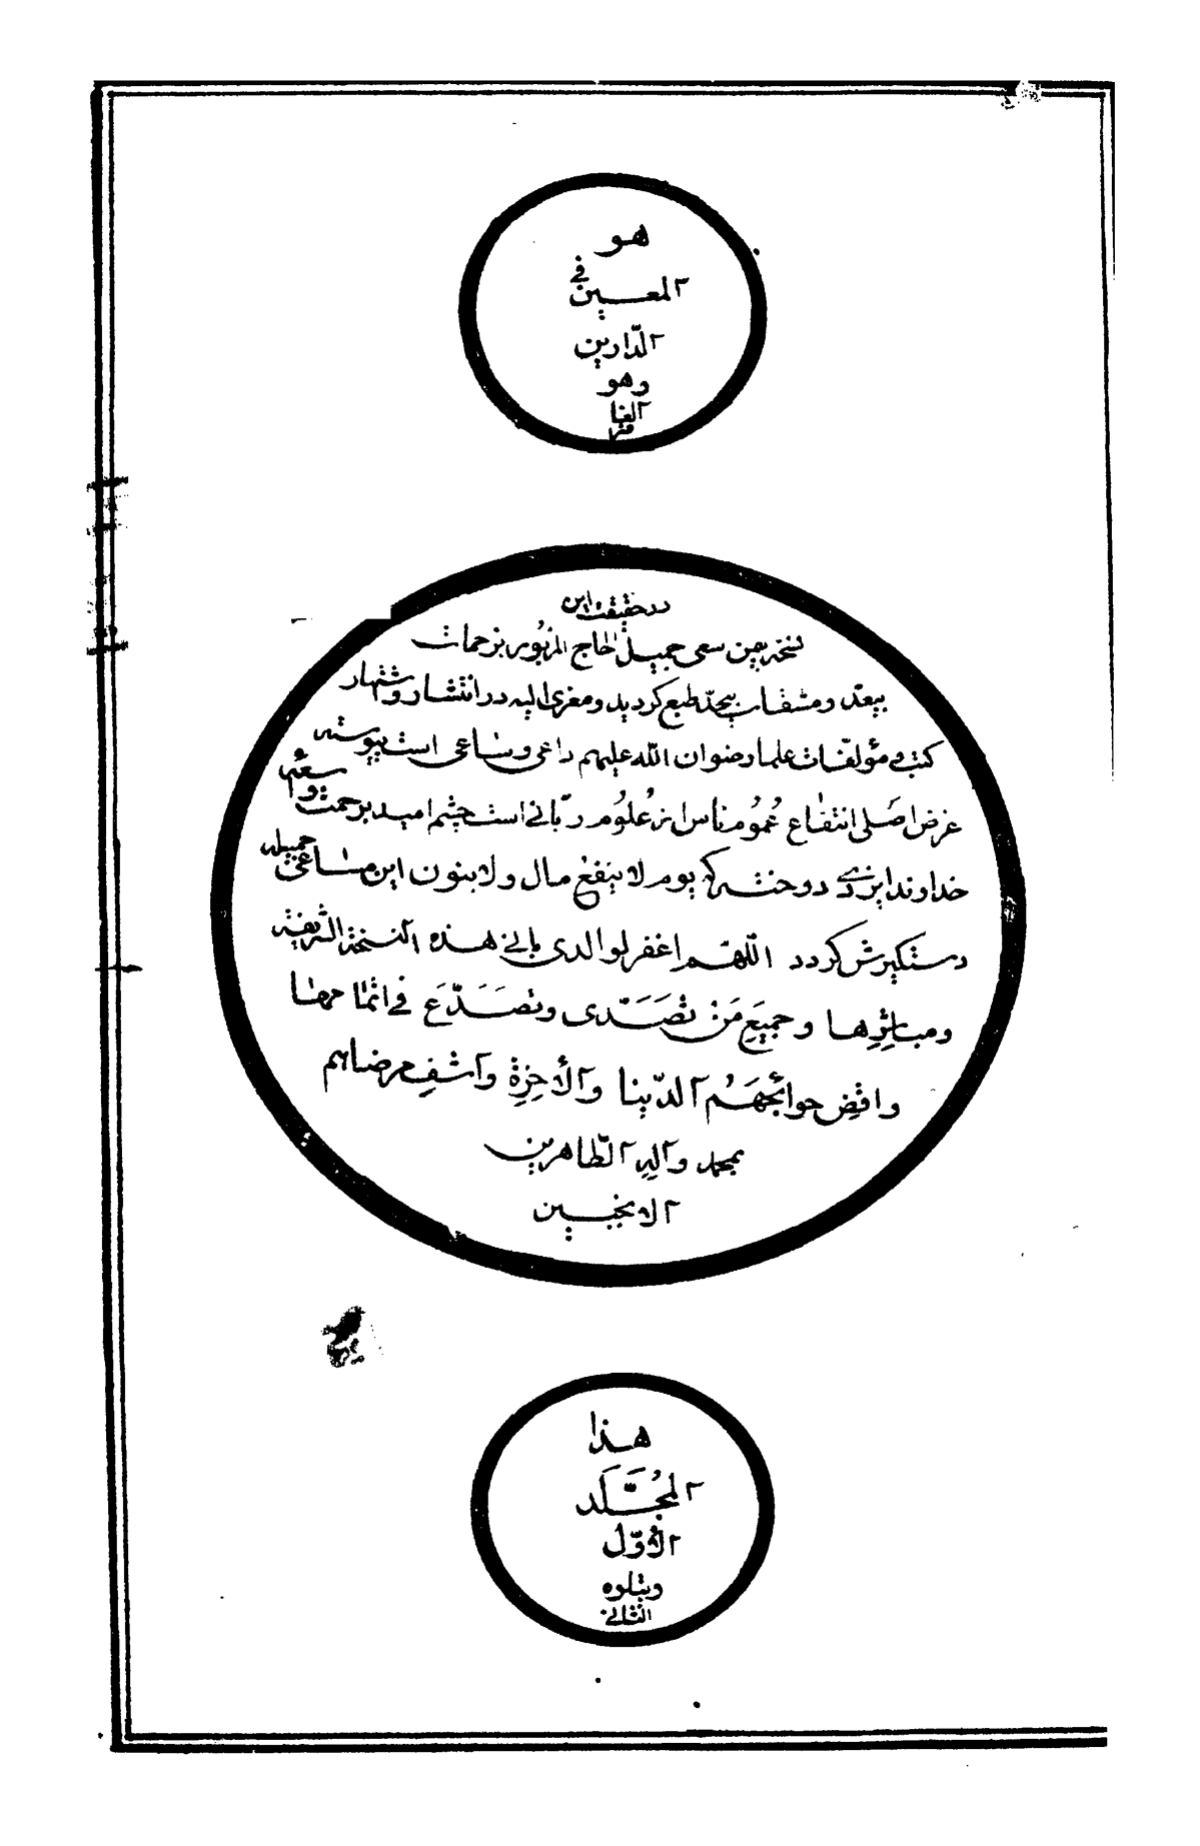 هو
المعین في
الدّارین
وهو
در حقیقت این
نسخه بیمن سعی جمیل الحاج المزبور بزحمات
بیعدّ و مشقات بیحدّ طبع کردید و معزی الیه در انتشار و اشتهار
کتب و مؤلفات علما رضوان الله علیهم داعی و ساعی است پیوسته
غرض اصلی انتفاع عُمُوم ناس از عُلوُم ربّانی است چشم امید برحمت واسعهٔ
خداوند ایزدی دوخته که یوم لا ینفع مال ولا بنون این مساعی جمیله
دستکیرش کردد اللّهم اغفر لوالدی بانی هذه النسخة الشریفة
ومباشِرِها وجمیَعِ مَنْ تصَدّی وتصَدّعَ في اتمامها
واقضِ حوائجهَُم الدّنیا والأخِرِةِ وآشفِ مرضاهم
بمحمد وآلِهِ الطّاهرین
الانجبین
هذا
المُجَلَّد
الأوّل
ویتلوه
الثانی